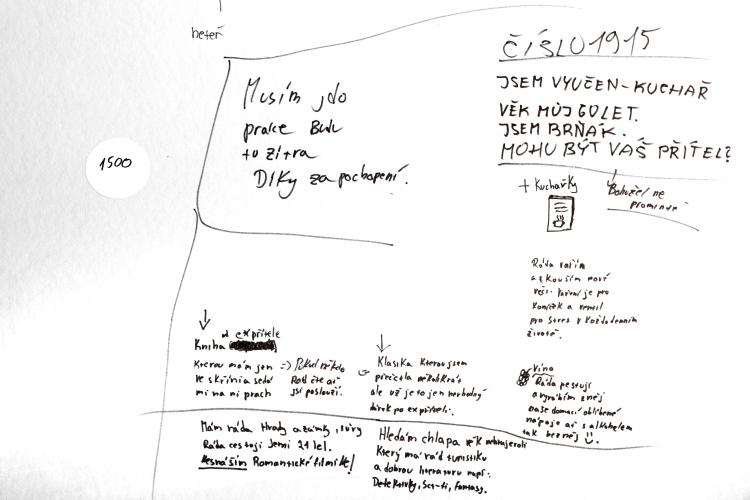 heteř
1500
Musím jdo
práce Budu
tu zítra
Díky za pochopení.
ČÍSLO 1915
JSEM VYUČEN-KUCHAŘ
VĚK MŮJ 60 LET.
JSEM BRŇÁK.
MOHU BÝT VÁŠ PŘÍTEL?
+ Kuchařky
Bohužel ne
promiňte
Ráda vařím
a zkouším nové
věci. Vaření je pro
koníček a ventil
pro stres v každodenním
životě.
od expřítele
Kniha
Kterou mám jen
ve skříni a sedá
mi na ní prach
=> Pokud někdo
Rád čte ať
jsi poslouží.
Klasika kterou jsem
přečetla několikrát
ale už je to jen nevhodný
dárek po expříteli.
Víno
Ráda pěstuji
a vyrábím z něj
naše domácí oblíbené
nápoje ať s alkoholem
tak bez něj
Mám ráda Hrady a zámky, túry
Ráda cestuji Jsem: 21 let.
Nesnáším Romantické filmiKé!
Hledám chlapa věk nehraje roli
Který má rád turistiku
a dobrou literaturu např:
Detektivky, Sci-fi, Fantasy.